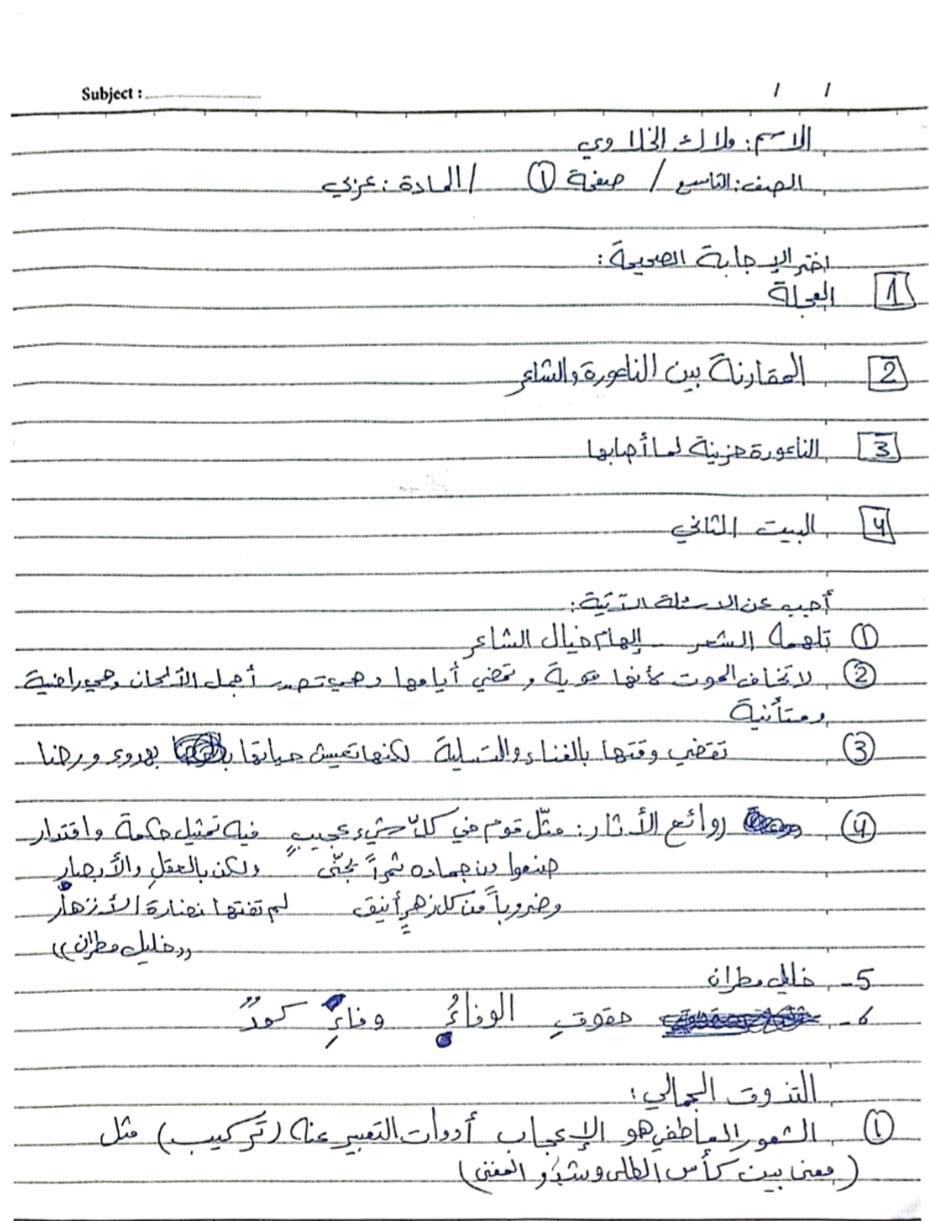 Subject : / /
الاسم: ملاك الخلاوي
الصف: التاسع / صفحة 1 / المادة: عربي
اختر الإجابة الصحيحة:
1 العجلة
2 المقارنة بين الناعورة والشاعر
3 الناعورة حزينة لما أصابها
4 البيت الثاني
أجب عن الاسئلة الآتية:
1 تلهمه الشعر إلهام خيال الشاعر
2 لا تخاف الموت كأنها قوية وتمضي أيامها وهي تصدر أجمل الألحان وهي راضية
ومتأنية
3 تقضي وقتها بالغناء والتسلية لكنها تعيش حياتها بهدوء ورضا
4 روائع الأثار: مثّل قوم في كلّ شيءٍ عجيبٍ فيه تمثيل حكمة واقتدار
صنعوا من جماده ثمراً يجنّى ولكن بالعقل والأبصار
وضروباً من كل زهرٍ أنيق لم تفتها نضارة الأزهار
((خليل مطران))
5- خليل مطران
6- حقوق الوفاءُ وفاءٍ
التذوق الجمالي:
1 الشعور العاطفي هو الإعجاب أدوات التعبير عنه (تركيب) مثل
(معنى بيت كأس الطلى وشدو المغني)